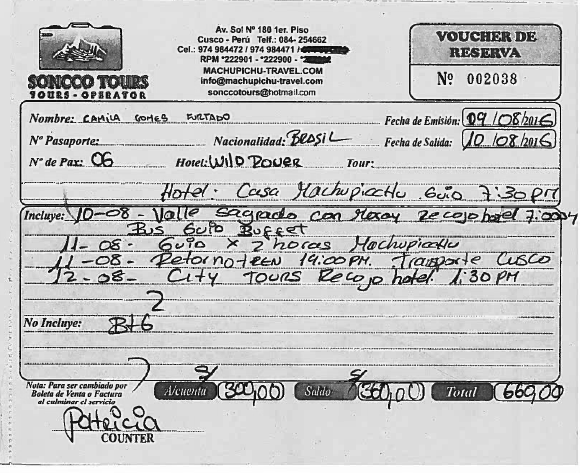 SONCCO TOURS
TOURS - OPERATOR
Av. Sol Nº 188 1er. Piso
Cusco - Perú Telf.: 084- 254662
Cel.: 974 984472 / 974 984471 /
RPM *222901 - *222900 -
MACHUPICHU-TRAVEL.COM
info@machupichu-travel.com
sonccotours@hotmail.com
VOUCHER DE
RESERVA
Nº 002038
Nombre: CAMILA GOMES FURTADO
Fecha de Emisión: 09/08/2016
Nº Pasaporte: Nacionalidad: BRASIL
Fecha de Salida: 10/08/2016
Nº de Pax: 06 Hotel: WILD ROVER Tour:
Hotel: Casa Machupicchu Guio 7:30 PM
Incluye: 10-08- Valle sagrado con Moray Recojo hotel 7:00
Bus Guio Buffet
11-08- Guio x 2 horas Machupicchu
11-08- Retorno tren 19:00 PM. Transporte Cusco
12-08- City TOURS Recojo hotel 1:30 PM
No Incluye: BTG
Nota: Para ser cambiado por
Boleta de Venta o Factura
al culminar el servicio
A/cuenta S/ 300,00 Saldo S/ 360,00 Total 660,00
Patricia
COUNTER